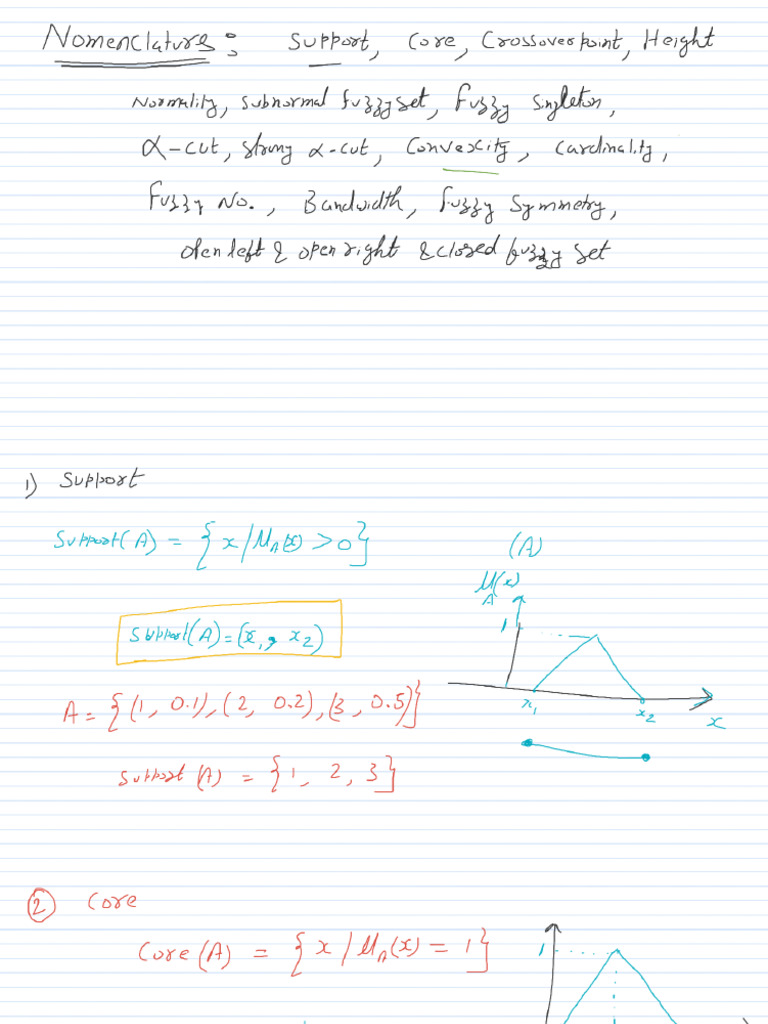 Nomenclature: Support, Core, Crossover point, Height
Normality, Subnormal fuzzy set, Fuzzy Singleton,
α-cut, Strong α-cut, Convexity, Cardinality,
Fuzzy No., Bandwidth, Fuzzy Symmetry,
Open left & open right & closed fuzzy set
1) Support
Support(A) = {x/μ_A(x) > 0}
(A)
μ_A(x)
1
Support(A) = (x₁, x₂)
A = {(1, 0.1), (2, 0.2), (3, 0.5)}
x₁ x₂ x
Support(A) = {1, 2, 3}
2 Core
Core(A) = {x/μ_A(x) = 1}
1